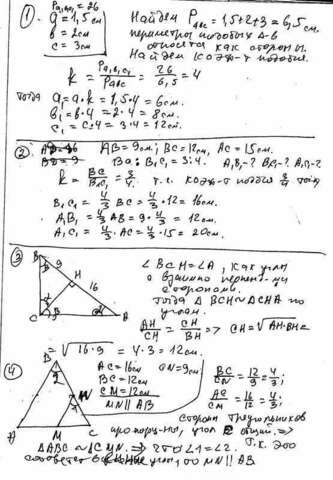 ① P a₁b₁c₁ = 26
a = 1,5 см
b = 2см
c = 3см
Найдем P авс = 1,5+2+3 = 6,5 см.
периметры подобных Δ-в
относятся как стороны.
Найдем коэф-т подобия.
k = P A₁B₁C₁ / P ABC = 26 / 6,5 = 4
тогда
a₁ = a·k = 1,5·4 = 6см.
b₁ = b·4 = 2·4 = 8см.
c₁ = c·4 = 3·4 = 12см.
② AB = 9см; BC = 12см, AC = 15см.
B₁C₁ = 3:4. A₁B₁-? B₁C₁-? A₁C₁-?
k = BC / B₁C₁ = 3/4. т.к. коэф-т подобия 3/4
B₁C₁ = 4/3 BC = 4/3·12 = 16см.
A₁B₁ = 4/3 AB = 9·4/3 = 12см.
A₁C₁ = 4/3·AC = 4/3·15 = 20см.
③ B 9 H 16 C A
∠BCH = ∠A, как углы
с взаимно перпен-ми
сторонами.
Тогда Δ BCH ~ ΔCHA по
углам.
AH / CH = CH / BH => CH = √AH·BH =
= √16·9 = 4·3 = 12см.
④ B 2 N 1 A M C
AC = 16см CN = 9см
BC = 12см
CM = 12см
MN || AB
BC / CN = 12 / 9 = 4/3;
AC / CM = 16 / 12 = 4/3;
стороны треугольников
пропорц-ны, угол C общий. =>
ΔABC ~ ΔCMN. => ∠1 = ∠2. т.к. это
углы, то MN || AB